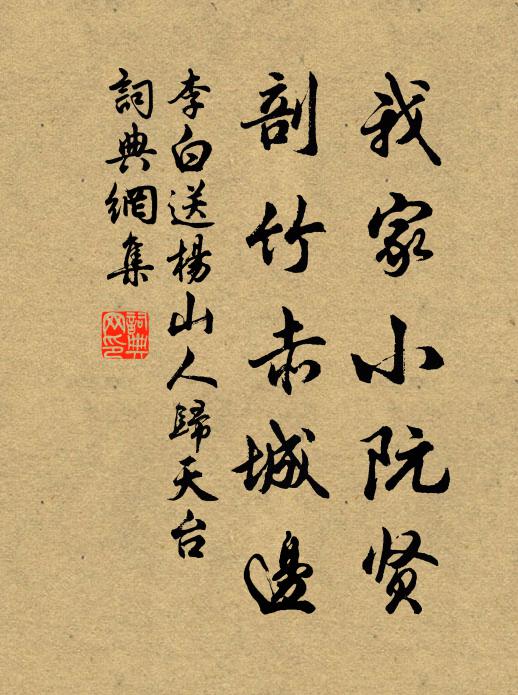 我家小阮贤
剖竹赤城邊
李白送楊山人歸天台
詞典網集
詞典
网印